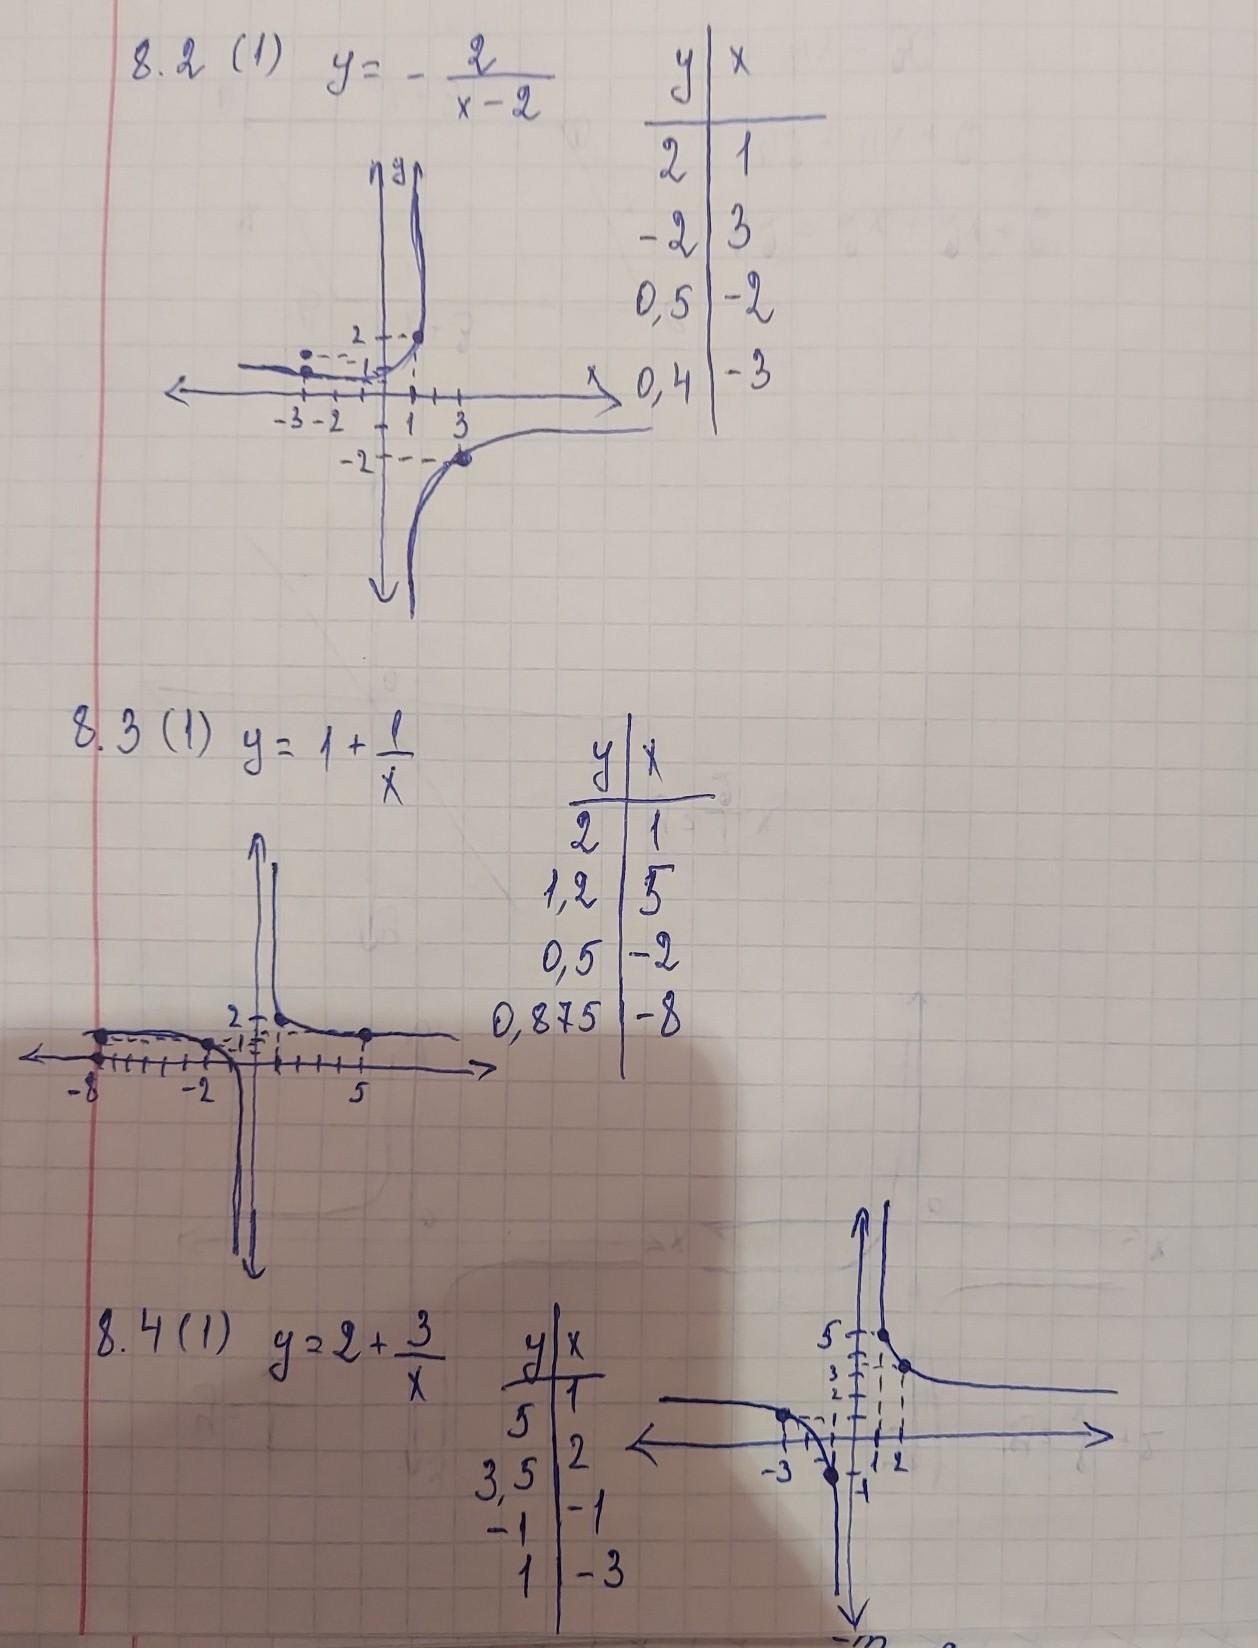 8.2 (1) y = - 2/(x-2)
y | x
2 | 1
-2 | 3
0,5 | -2
0,4 | -3
y
2
1
x
-3 -2 1 3
-2
8.3 (1) y = 1 + 1/x
y | x
2 | 1
1,2 | 5
0,5 | -2
0,875 | -8
2
1
-8 -2 5
8.4 (1) y = 2 + 3/x
y | x
5 | 1
3,5 | 2
-1 | -1
1 | -3
5
3
2
-3 1 2
-1